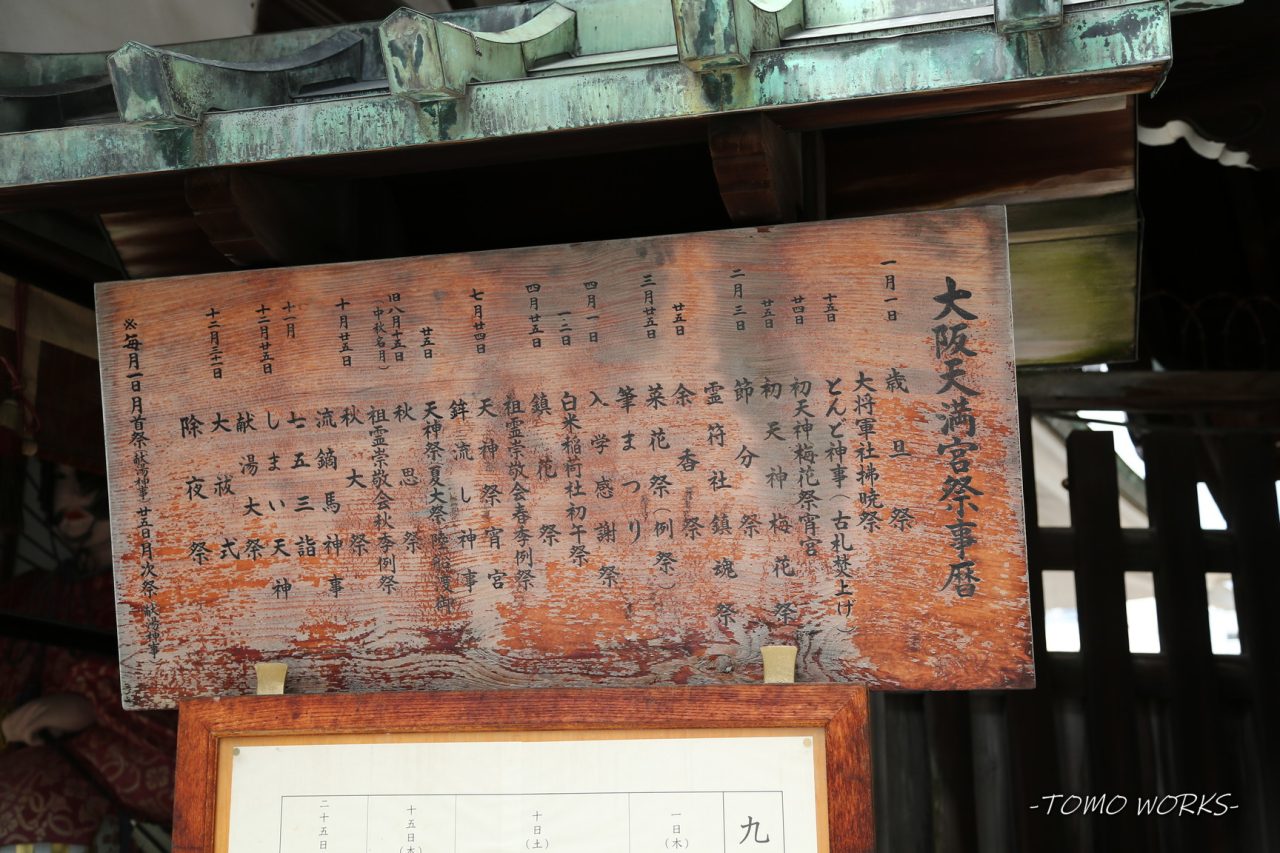 大阪天満宮祭事暦
一月一日 歳旦祭
大将軍社拂暁祭
十五日 とんど神事(古札焚上げ)
廿四日 初天神梅花祭宵宮
廿五日 初天神梅花祭
二月三日 節分祭
霊符社鎮魂祭
廿五日 余香祭
三月廿五日 菜花祭(例祭)
筆まつり
四月一日 入学感謝祭
白米稲荷社初午祭
四月廿五日 鎮花祭
祖霊崇敬会春季例祭
七月廿四日 天神祭宵宮
鉾流し神事
廿五日 天神祭夏大祭 陸船渡御
旧八月十五日(中秋名月) 秋思祭
祖霊崇敬会秋季例祭
十月廿五日 秋大祭
流鏑馬神事
十一月 七五三詣
十二月廿五日 しまい天神
献湯大祭
十二月三十一日 大祓式
除夜祭
※毎月一日月首祭 献湯神事 廿五日月次祭 献湯神事
九
一日(木)
十日(土)
十五日(木)
二十五日
-TOMO WORKS-